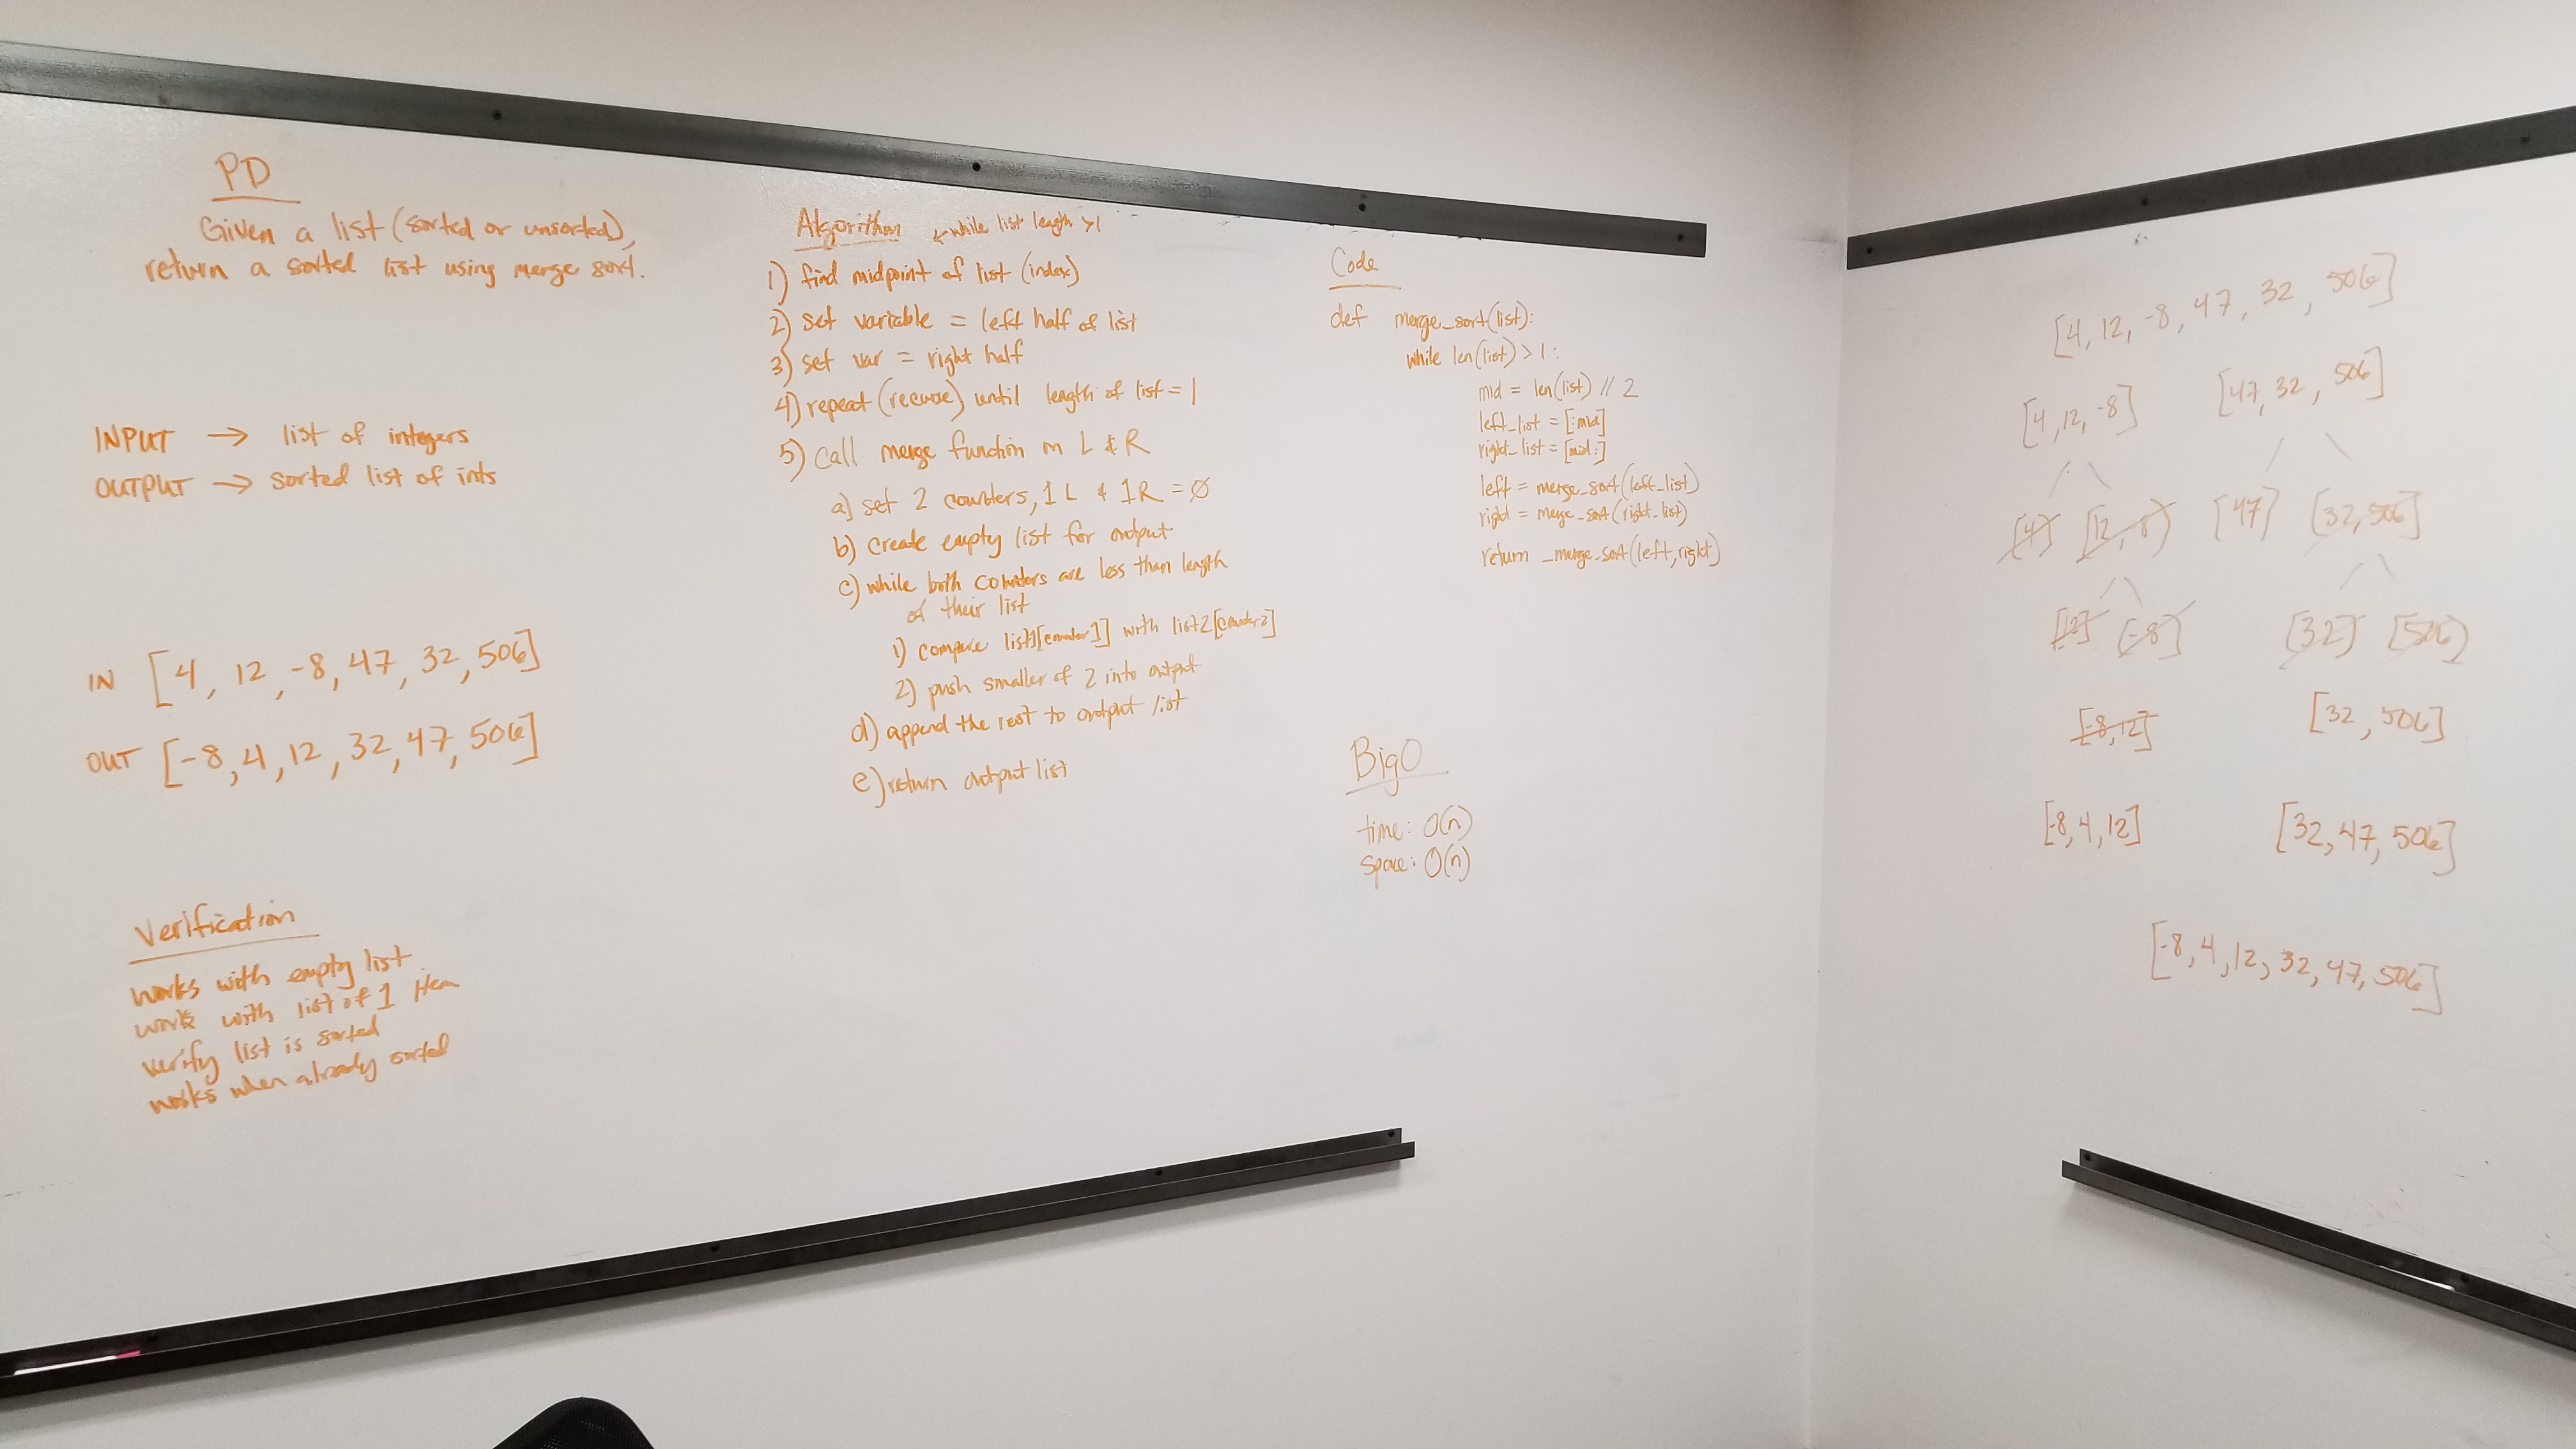 PD
Given a list (sorted or unsorted),
return a sorted list using merge sort.
INPUT → list of integers
OUTPUT → sorted list of ints
IN [4, 12, -8, 47, 32, 506]
OUT [-8, 4, 12, 32, 47, 506]
Verification
works with empty list
works with list of 1 item
verify list is sorted
works when already sorted
Algorithm ← while list length >1
1) find midpoint of list (index)
2) set variable = left half of list
3) set var = right half
4) repeat (recurse) until length of list = 1
5) call merge function on L & R
a) set 2 counters, 1 L & 1 R = Ø
b) create empty list for output
c) while both counters are less than length
of their list
1) compare list1[counter1] with list2[counter2]
2) push smaller of 2 into output
d) append the rest to output list
e) return output list
Code
def merge_sort(list):
while len(list) > 1:
mid = len(list) // 2
left_list = [:mid]
right_list = [mid:]
left = merge_sort(left_list)
right = merge_sort(right_list)
return _merge_sort(left, right)
Big O
time: O(n)
space: O(n)
[4, 12, -8, 47, 32, 506]
[4, 12, -8] [47, 32, 506]
[4] [12, -8] [47] [32, 506]
[12] [-8] [32] [506]
[-8, 12] [32, 506]
[-8, 4, 12] [32, 47, 506]
[-8, 4, 12, 32, 47, 506]